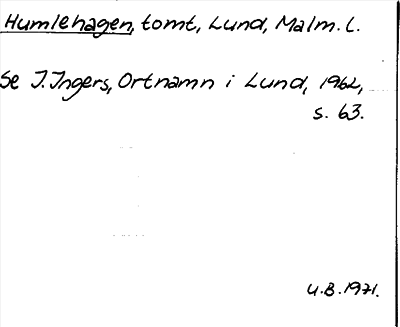 Humlehagen, tomt, Lund, Malm. L.
Se I. Ingers, Ortnamn i Lund, 1962,
s. 63.
U.B. 1971.